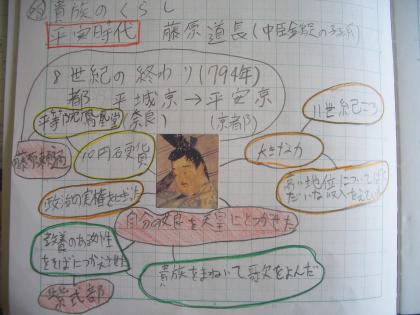 貴族のくらし
平安時代 藤原道長(中臣鎌足の子孫)
8世紀の終わり(794年)
都 平城京→平安京
(奈良) (京都)
平等院鳳凰堂
11世紀ごろ
10円硬貨
大きな力
高い地位について
政治の実権を
自分の娘を天皇にとつがせた
教養のある女性
をそばにつかえさせた
貴族をまねいて歌をよんだ
紫式部